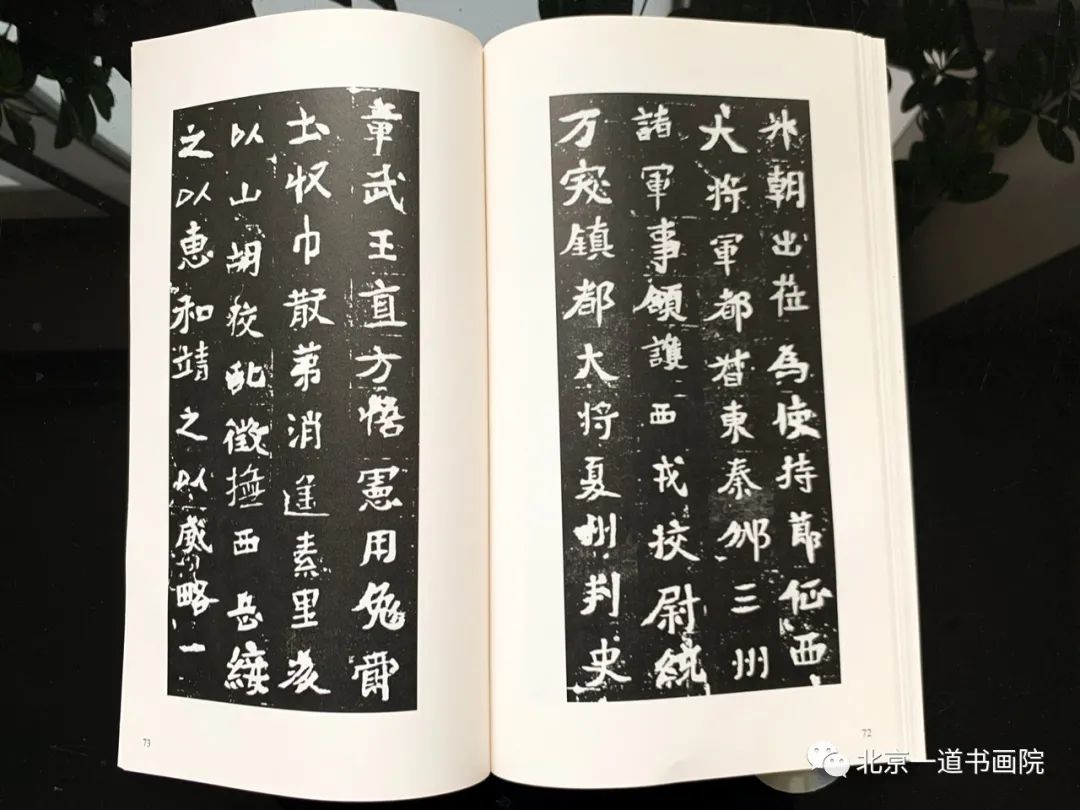 外朝出莅為使持節征西
大将軍都督東秦邠三州
諸軍事領護西戎校尉統
万突鎮都大将夏州刺史
72
章武王直方悟憲用免爵
土収巾散第消遥素里後
以山胡狡乱徵撫西岳綏
之以惠和靖之以威略一
73
北京一道书画院